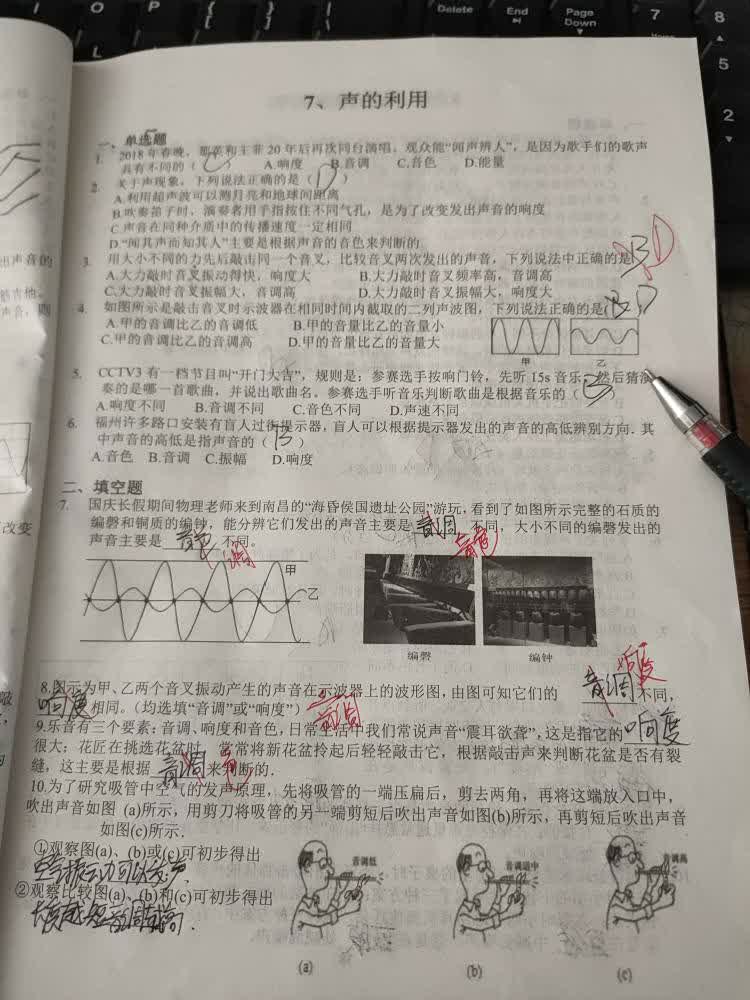 O
P
Delete
End
Page
Down
7
8
5
2
7、声的利用
一、单选题
1. 2018年春晚，那英和王菲20年后再次同台演唱。观众能“闻声辨人”，是因为歌手们的歌声
具有不同的（C） A.响度 B.音调 C.音色 D.能量
2. 关于声现象，下列说法正确的是（D）
A.利用超声波可以测月亮和地球间距离
B.吹奏笛子时，演奏者用手指按住不同气孔，是为了改变发出声音的响度
C.声音在同种介质中的传播速度一定相同
D.“闻其声而知其人”主要是根据声音的音色来判断的
3. 用大小不同的力先后敲击同一个音叉，比较音叉两次发出的声音，下列说法中正确的是 B D
A.大力敲时音叉振动得快，响度大 B.大力敲时音叉频率高，音调高
C.大力敲时音叉振幅大，音调高 D.大力敲时音叉振幅大，响度大
4. 如图所示是敲击音叉时示波器在相同时间内截取的二列声波图，下列说法正确的是( D
A.甲的音调比乙的音调低 B.甲的音量比乙的音量小
C.甲的音调比乙的音调高 D.甲的音量比乙的音量大
甲 乙
5. CCTV3有一档节目叫“开门大吉”，规则是：参赛选手按响门铃，先听15s音乐，然后猜演
奏的是哪一首歌曲，并说出歌曲名。参赛选手听音乐判断歌曲是根据音乐的（
A.响度不同 B.音调不同 C.音色不同 D.声速不同
6. 福州许多路口安装有盲人过街提示器，盲人可以根据提示器发出的声音的高低辨别方向．其
中声音的高低是指声音的（B）
A.音色 B.音调 C.振幅 D.响度
二、填空题
7. 国庆长假期间物理老师来到南昌的“海昏侯国遗址公园”游玩，看到了如图所示完整的石质的
编磬和铜质的编钟，能分辨它们发出的声音主要是 音调 不同，大小不同的编磬发出的
音色
声音主要是 音色 不同．
调
甲
乙
编磬 编钟
8.图示为甲、乙两个音叉振动产生的声音在示波器上的波形图，由图可知它们的 音调 不同，
响度
响度 相同。（均选填“音调”或“响度”）
音调
9.乐音有三个要素：音调、响度和音色，日常生活中我们常说声音“震耳欲聋”，这是指它的 响度
很大；花匠在挑选花盆时，常常将新花盆拎起后轻轻敲击它，根据敲击声来判断花盆是否有裂
缝，这主要是根据 音调 来判断的．
色
10.为了研究吸管中空气的发声原理，先将吸管的一端压扁后，剪去两角，再将这端放入口中，
吹出声音如图 (a)所示，用剪刀将吸管的另一端剪短后吹出声音如图(b)所示，再剪短后吹出声音
如图(c)所示．
①观察图(a)、(b)或(c)可初步得出
空气振动可以发声．
②观察比较图(a)、(b)和(c)可初步得出
音调低 音调适中 音调高
(a) (b) (c)